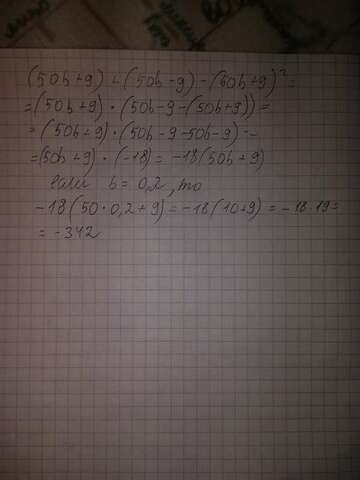 (50b+9)·(50b-9)-(50b+9)²=
=(50b+9)·(50b-9-(50b+9))=
=(50b+9)·(50b-9-50b-9)=
=(50b+9)·(-18)=-18(50b+9)
если b=0,2, то
-18(50·0,2+9)=-18(10+9)=-18·19=
=-342